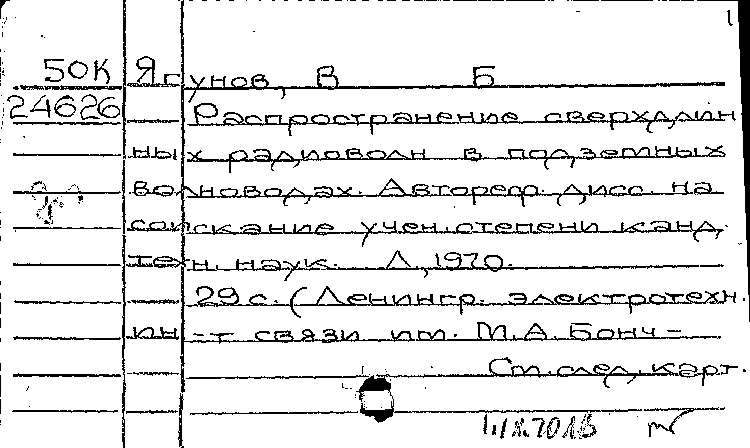 1
50К Ягунов, В Б
24626 Распространение сверхдлин
ных радиоволн в подземных
волноводах. Автореф. дисс. на
соискание учен. степени канд.
техн. наук. Л., 1970.
29 с. (Ленингр. электротехн.
ин-т связи им. М.А. Бонч-
См. след. карт.